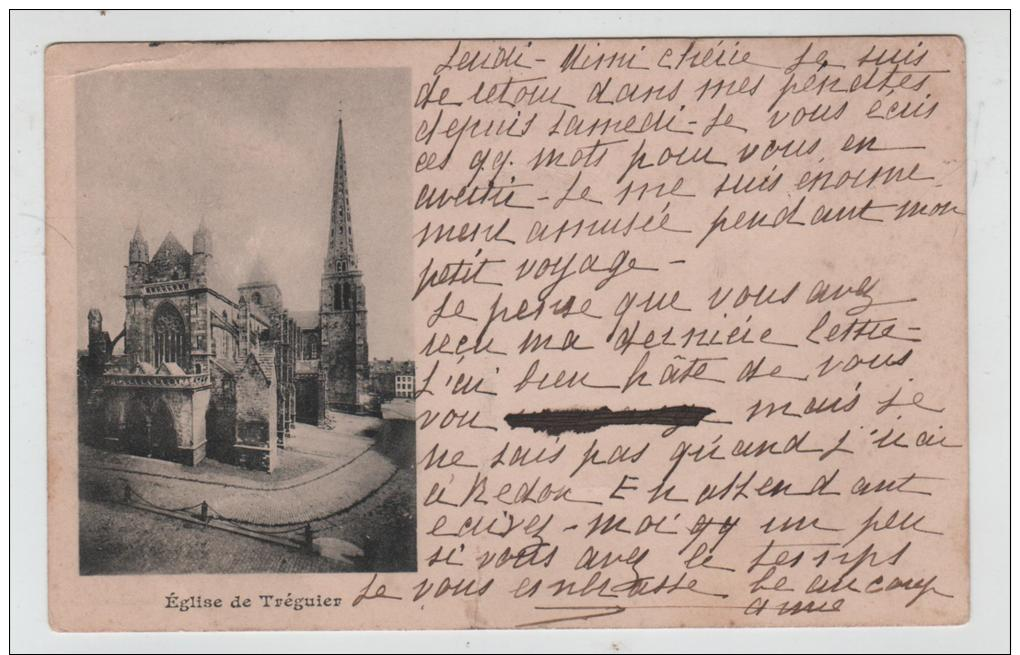 Jeudi - Mimi chérie Je suis
de retour dans mes pénates
depuis samedi - Je vous écris
ces qq. mots pour vous en
avertir - Je me suis énorme
ment amusée pendant mon
petit voyage -
Je pense que vous avez
reçu ma dernière lettre -
J'ai bien hâte de vous
voir mais je
ne sais pas quand j'irai
à Redon En attendant
écrivez - moi qq un peu
si vous avez le temps
Je vous embrasse beaucoup
Église de Tréguier